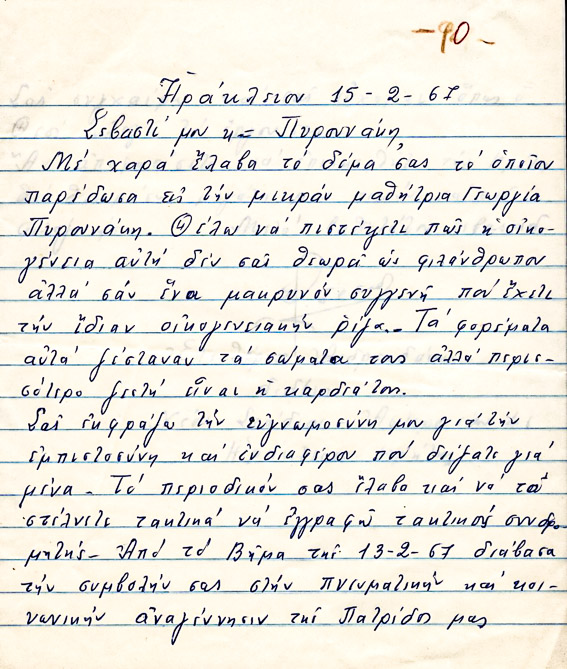 -90-
Ἡράκλειον 15-2-67
Σεβαστέ μου κ= Πυρουνάκη
Μέ χαρά ἔλαβα τό δέμα σας τό ὁποῖον
παρέδωσα εἰς τήν μικράν μαθήτρια Γεωργία
Πυρουνάκη. Θέλω νά πιστέψετε πώς ἡ οἰκο-
γένεια αὐτή δέν σᾶς θεωρεῖ ὡς φιλάνθρωπον
ἀλλά σάν ἕνα μακρυνόν συγγενῆ πού ἔχει
τήν ἴδιαν οἰκογενειακήν ρίζα.- Τά φορέματα
αὐτά ζέσταναν τά σώματα τους ἀλλά περισ-
σότερο ζεστή εἶναι ἡ καρδιά τους.
Σᾶς ἐκφράζω τήν εὐγνωμοσύνη μου γιά τήν
ἐμπιστοσύνη καί ἐνδιαφέρον πού δείξατε γιά
μένα - Τό περιοδικόν σας ἔλαβα καί νά τό
στέλνετε τακτικά νά ἐγγραφῶ τακτικός συνδρο-
μητής - Ἀπό τό Βῆμα τῆς 13-2-67 διάβασα
τήν συμβολήν σας στήν πνευματικήν καί κοι-
νωνικήν ἀναγέννησιν τῆς Πατρίδος μας